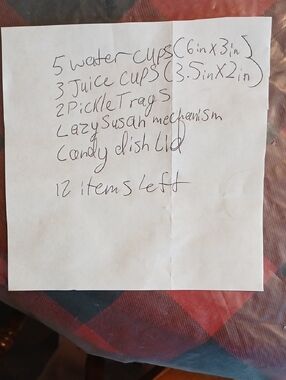 5 water cups (6in X 3in)
3 Juice cups (3.5in X 2in)
2 Pickle Trays
Lazy Susan mechanism
Candy dish Lid
12 items Left